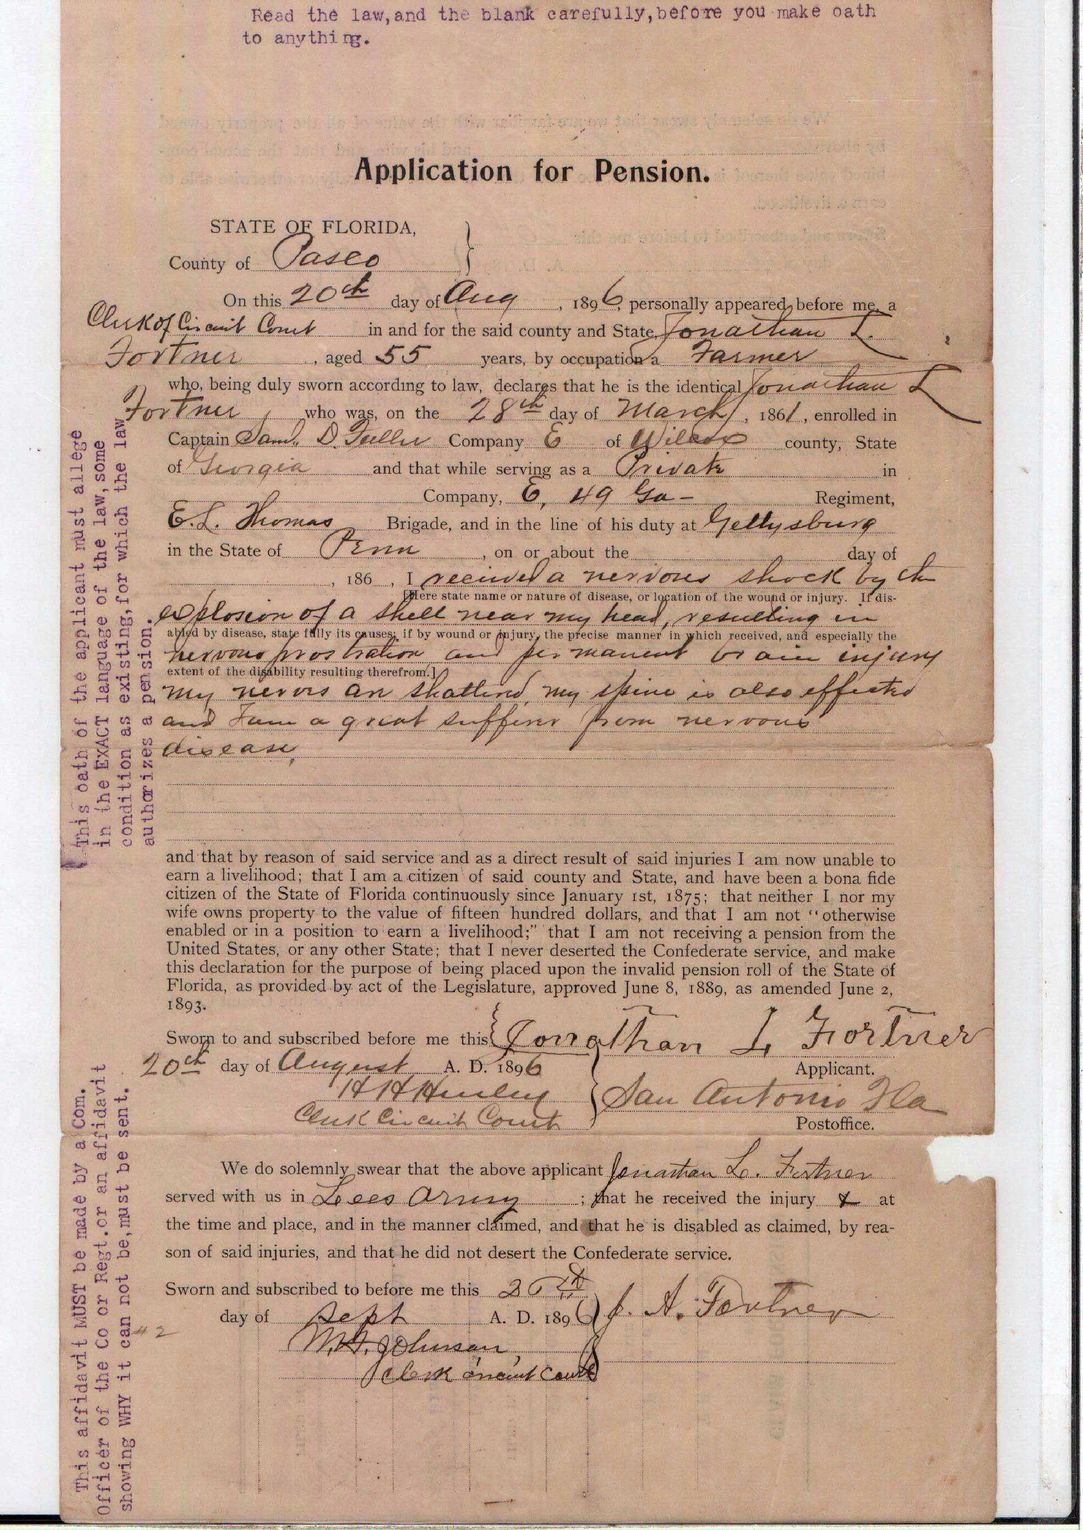 Read the law,and the blank carefully,before you make oath
to anything.
Application for Pension.
STATE OF FLORIDA,
County of Pasco
On this 20th day of Aug , 1896, personally appeared before me, a
Clerk of Circuit Court in and for the said county and State, Jonathan L.
Fortner , aged 55 years, by occupation a Farmer
who, being duly sworn according to law, declares that he is the identical Jonathan L
Fortner , who was, on the 28th day of March , 1861, enrolled in
Captain Saml. D. Fuller Company E of Wilcox county, State
of Georgia and that while serving as a Private in
Company, E, 49 Ga - Regiment,
E. L. Thomas Brigade, and in the line of his duty at Gettysburg
in the State of Penn , on or about the day of
, 186 , I received a nervous shock by the
[Here state name or nature of disease, or location of the wound or injury. If dis-
explosion of a shell near my head, resulting in
abled by disease, state fully its causes; if by wound or injury, the precise manner in which received, and especially the
nervous prostration and permanent brain injury
extent of the disability resulting therefrom.]
my nerves are shattered, my spine is also effected
and I am a great sufferer from nervous
disease,
and that by reason of said service and as a direct result of said injuries I am now unable to
earn a livelihood; that I am a citizen of said county and State, and have been a bona fide
citizen of the State of Florida continuously since January 1st, 1875; that neither I nor my
wife owns property to the value of fifteen hundred dollars, and that I am not "otherwise
enabled or in a position to earn a livelihood;" that I am not receiving a pension from the
United States, or any other State; that I never deserted the Confederate service, and make
this declaration for the purpose of being placed upon the invalid pension roll of the State of
Florida, as provided by act of the Legislature, approved June 8, 1889, as amended June 2,
1893.
Sworn to and subscribed before me this Jonathan L Fortner
20th day of August A. D. 1896 Applicant.
H H Henley San Antonio Fla
Clerk Circuit Court Postoffice.
We do solemnly swear that the above applicant Jonathan L. Fortner
served with us in Lees Army ; that he received the injury x at
the time and place, and in the manner claimed, and that he is disabled as claimed, by rea-
son of said injuries, and that he did not desert the Confederate service.
Sworn and subscribed to before me this J. A. Fortner
day of Sept A. D. 1896
Johnson
Clerk circuit court
This oath of the applicant must allege
in the EXACT language of the law, some
condition as existing, for which the law
authorizes a pension.
This affidavit MUST be made by a Com.
Officer of the Co or Regt. or an affidavit
showing WHY it can not be, must be sent.